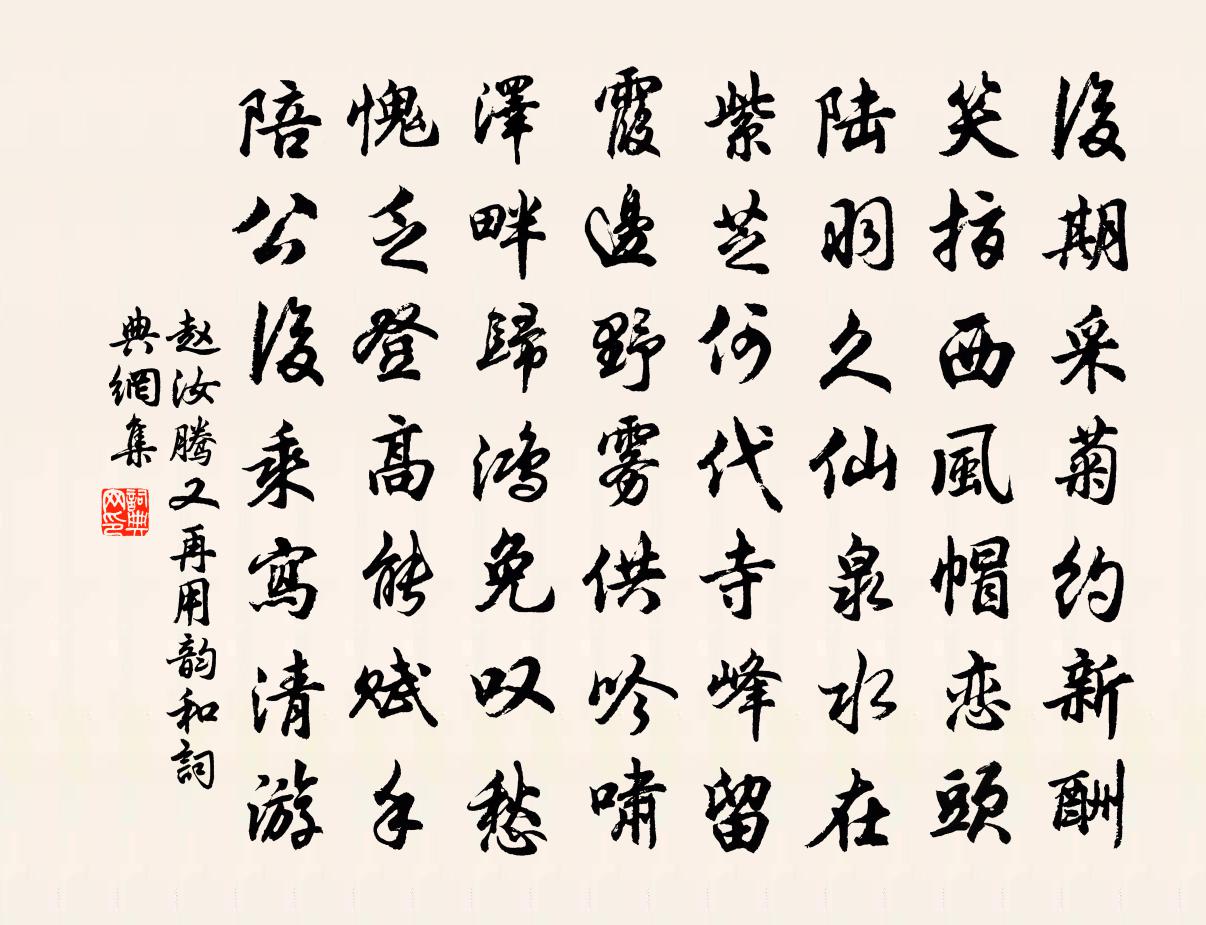 後期采菊約新酬
笑指西風帽恋頭
陆羽久仙泉水在
紫芝何代寺峰留
霞邊野雾供吟嘯
澤畔歸鴻免叹愁
愧乏登高能赋手
陪公後乘寫清游
赵汝騰又再用韵和詞
典網集
詞典
网印